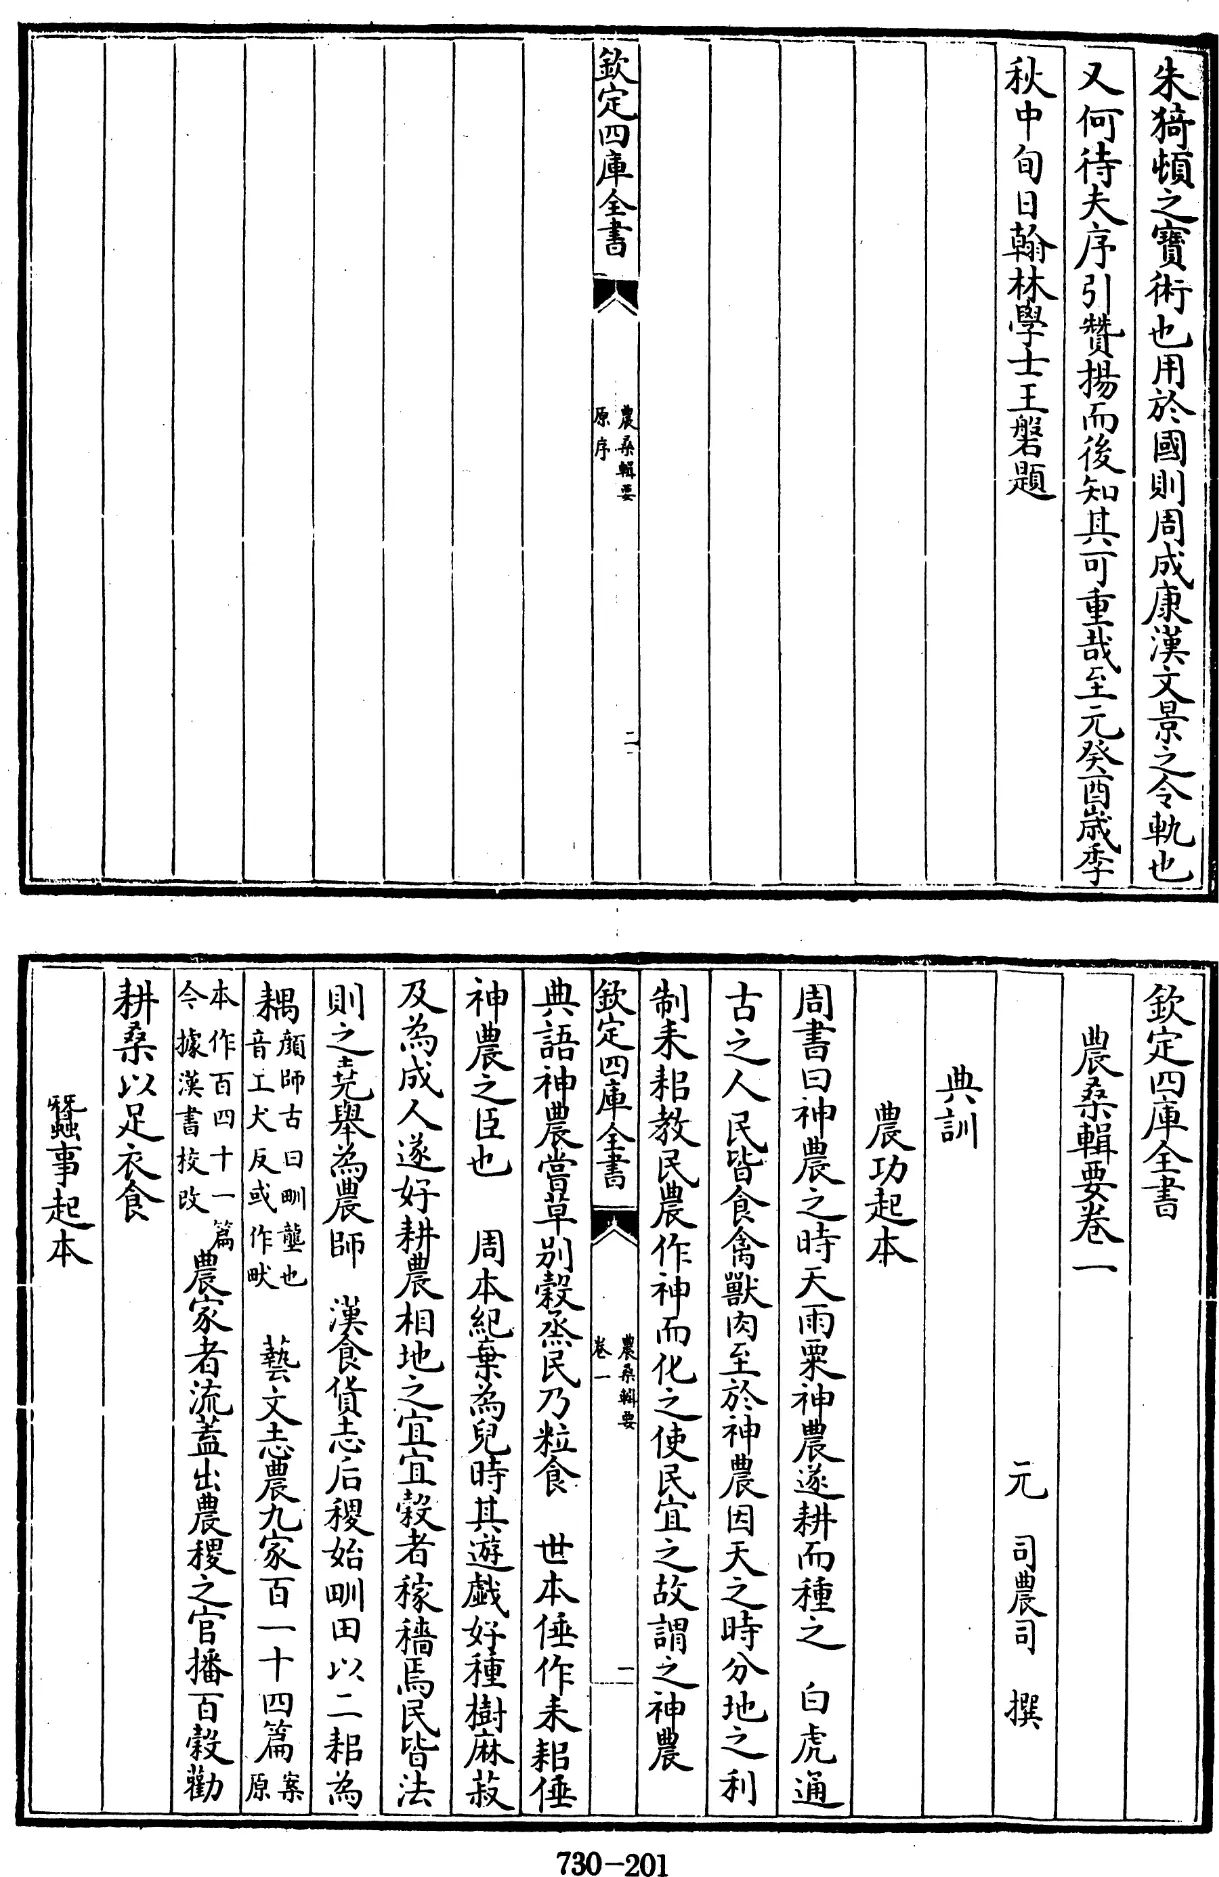 朱猗頓之寶術也用於國則周成康漢文景之令軌也
又何待夫序引贊揚而後知其可重哉至元癸酉歲季
秋中旬日翰林學士王磐題
欽定四庫全書
農桑輯要
原序
二
欽定四庫全書
農桑輯要卷一
元 司農司 撰
典訓
農功起本
周書曰神農之時天雨粟神農遂耕而種之 白虎通
古之人民皆食禽獸肉至於神農因天之時分地之利
制耒耜教民農作神而化之使民宜之故謂之神農
欽定四庫全書
農桑輯要
卷一
一
典語神農嘗草別穀烝民乃粒食 世本倕作耒耜倕
神農之臣也 周本紀棄為兒時其遊戲好種樹麻菽
及為成人遂好耕農相地之宜宜穀者稼穡焉民皆法
則之堯舉為農師 漢食貨志后稷始甽田以二耜為
耦顔師古曰甽壟也音工犬反或作畎 藝文志農九家百一十四篇案原
本作百四十一篇今據漢書校改 農家者流蓋出農稷之官播百穀勸
耕桑以足衣食
蠶事起本
730-201